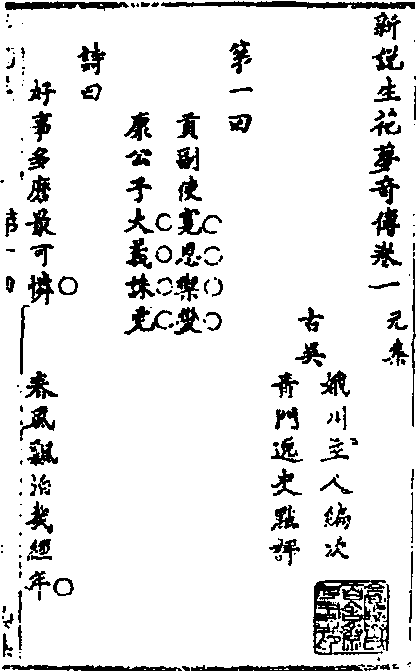 新說生花夢奇傳卷一 元集
古吳
娥川主人編次
青門逸史點評
第一回
貢副使寬恩禦變
康公子大義誅兇
詩曰
好事多磨最可憐○ 春風飄治幾經年○